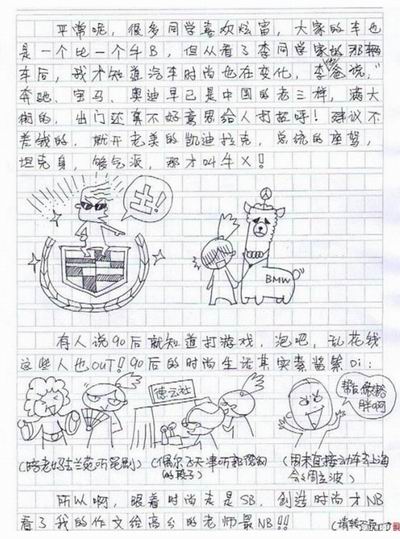 平常呢，很多同学喜欢炫富，大家的车也
是一个比一个牛B，但从看了李同学家的那辆
车后，我才知道汽车时尚也在变化，李爸说，“
奔驰、宝马、奥迪早已是中国的老三样，满大
街的，出门还真不好意思给人打招呼！建议不
差钱的，就开老美的凯迪拉克，总统的座驾，
坦克身，够气派，那才叫牛X！
土！
BMW
有人说90后就知道打游戏，泡吧，乱花钱
这些人也OUT！90后的时尚生活其实素酱紫Di：
德云社
(陪老妈去兰苑听昆剧)
(偶尔飞天津听郭德纲
的段子)
(周末直接动车去上海
会会周立波)
所以啊，跟着时尚走是SB，创造时尚才NB
看了我的作文给高分的老师最NB！！